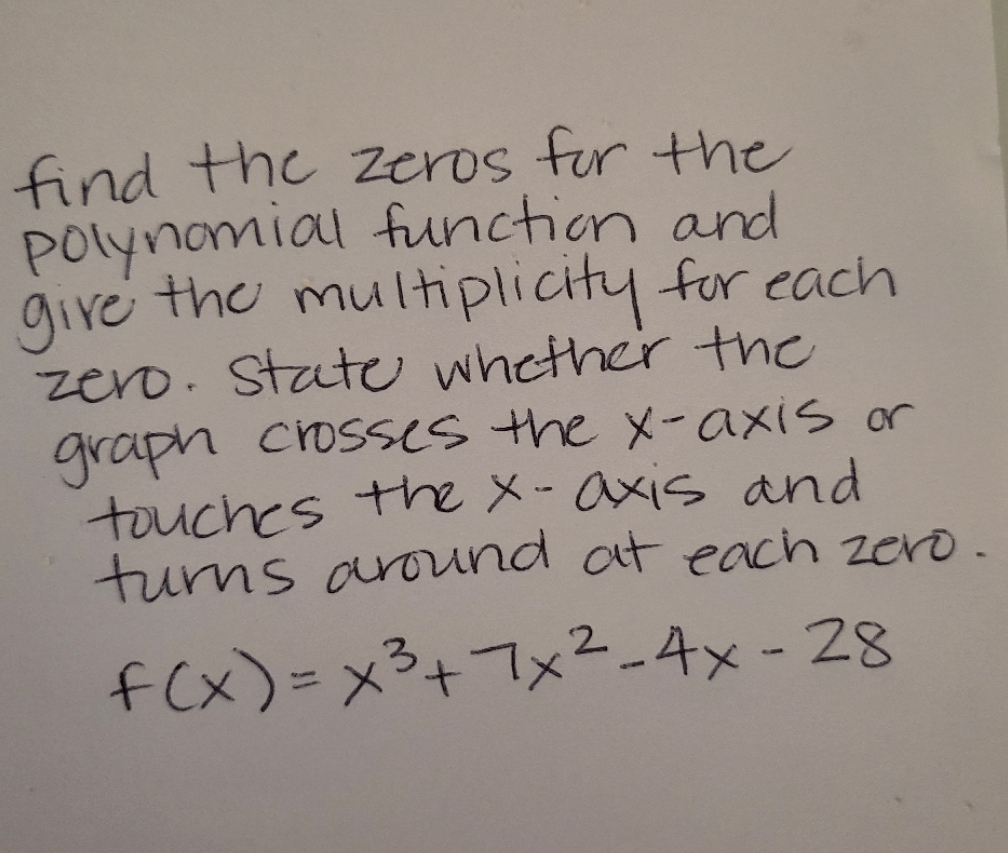 find the zeros for the
polynomial function and
give the multiplicity for each
zero. State whether the
graph crosses the x-axis or
touches the x-axis and
turns around at each zero.
f(x)=x³+7x²-4x-28